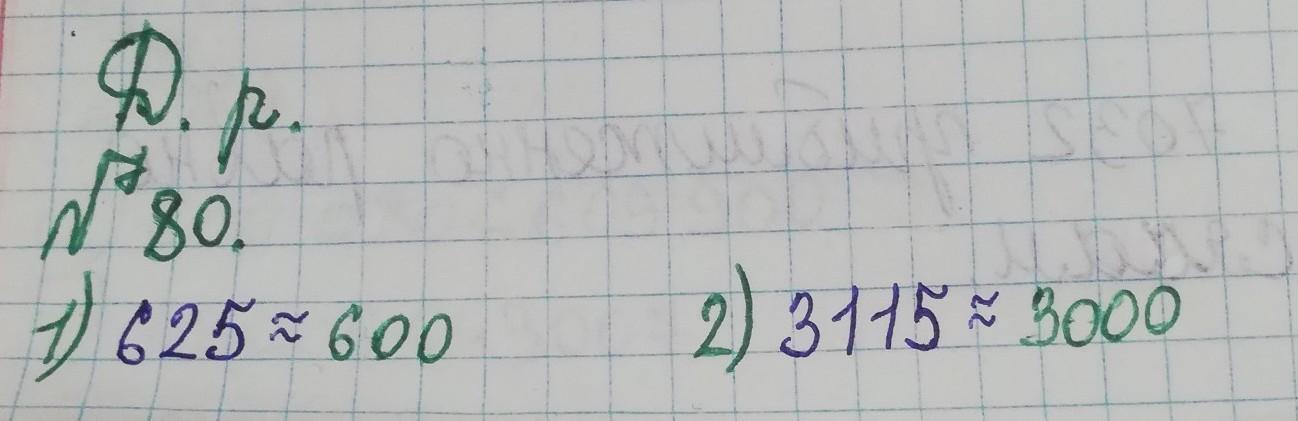 Д. р.
№ 80.
1) 625 ≈ 600 2) 3115 ≈ 3000